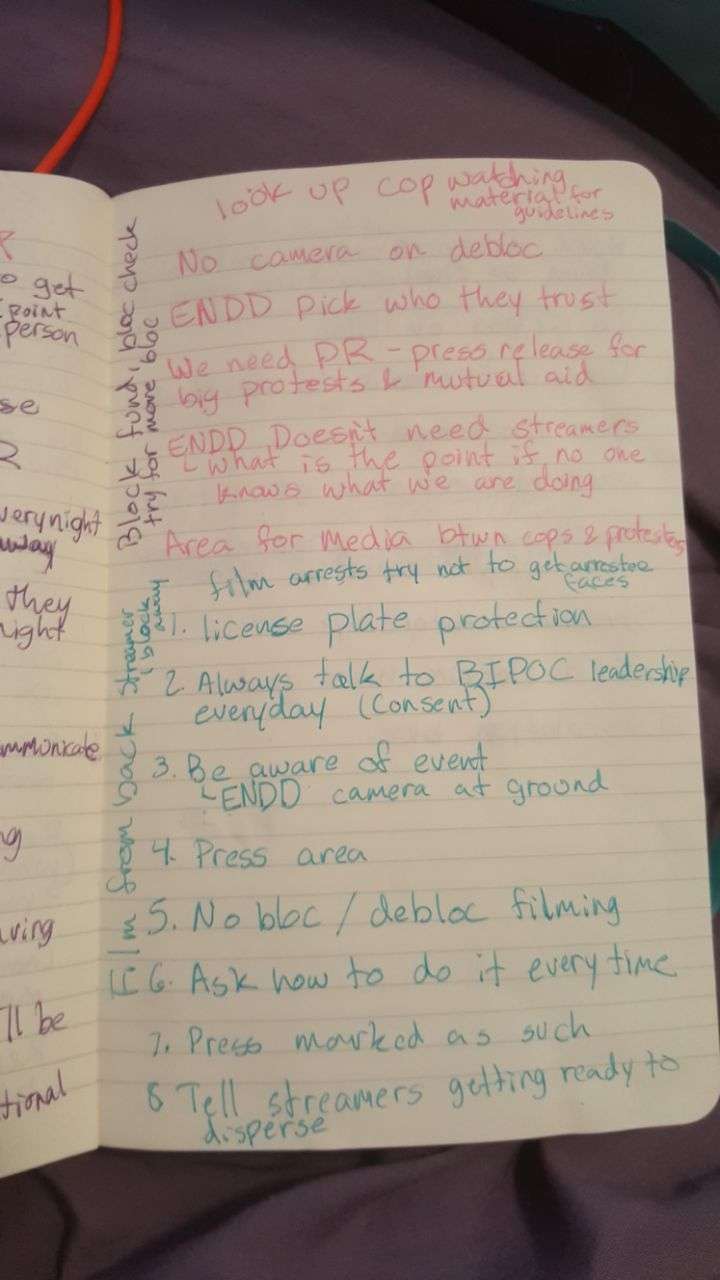 to get
point
person
se
very night
away
they
night
ommunicate
ng
ving
'll be
tional
Block fund, bloc check
try for more bloc
look up cop watching
material for
guidelines
No camera on debloc
ENDD pick who they trust
We need PR - press release for
big protests & mutual aid
ENDD Doesn't need streamers
what is the point if no one
knows what we are doing
Area for Media btwn cops & protesters
film arrests try not to get arrestee
faces
film from back streamer
block
away
1. license plate protection
2. Always talk to BIPOC leadership
everyday (consent)
3. Be aware of event
ENDD camera at ground
4. Press area
5. No bloc / debloc filming
6. Ask how to do it every time
7. Press marked as such
8 Tell streamers getting ready to
disperse